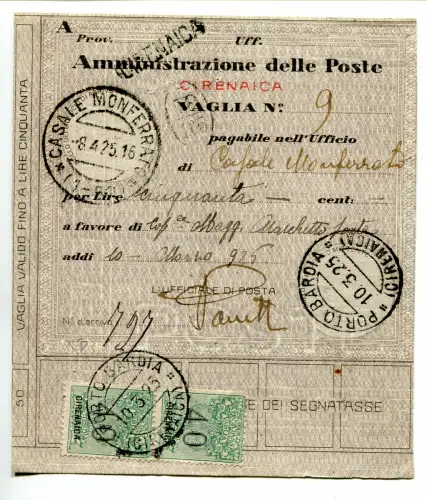 A
Prov. Uff.
CIRENAICA
Amministrazione delle Poste
CIRENAICA
VAGLIA Nº 9
pagabile nell'Ufficio
di Casale Monferrato
per Lire cinquanta — cent: —
a favore di Magg.
addì 10 - Marzo 925
L'UFFICIALE DI POSTA
Nº d'arrivo 797
* CASALE MONFERRATO
-8.4.25.16
* PORTO BARDIA * (CIRENAICA)
10.3.25
PORTO BARDIA
10.3.25
CIRENAICA
40
E DEI SEGNATASSE
VAGLIA VALIDO FINO A LIRE CINQUANTA
50